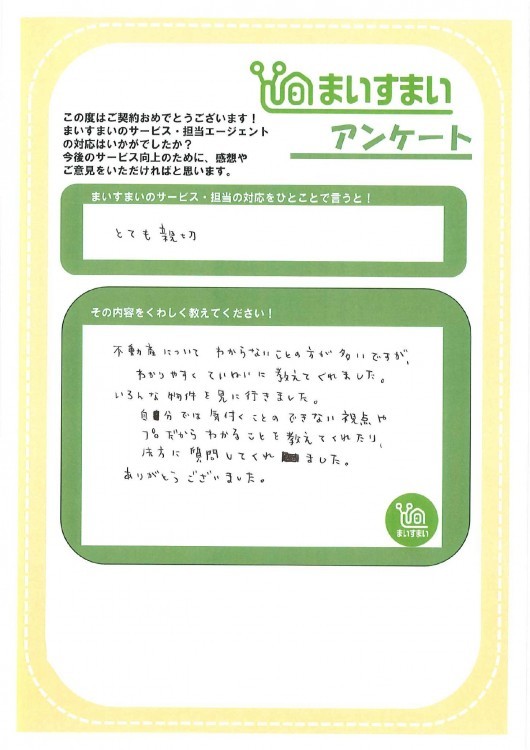 まいすまい
アンケート
この度はご契約おめでとうございます！
まいすまいのサービス・担当エージェント
の対応はいかがでしたか？
今後のサービス向上のために、感想や
ご意見をいただければと思います。
まいすまいのサービス・担当の対応をひとことで言うと！
とても親切
その内容をくわしく教えてください！
不動産について わからないことの方が多いですが、
わかりやすくていねいに教えてくれました。
いろんな物件を見に行きました。
自分では気付くことのできない視点や
プロだからわかることを教えてくれたり、
先方に質問してくれました。
ありがとうございました。
まいすまい